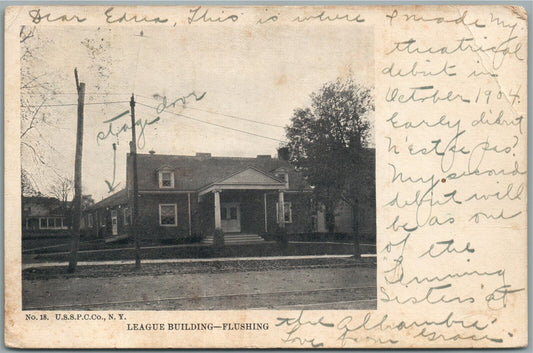 Dear Edna, This is where I made my
theatrical
debut in
October 1904.
Early debut
n'est ce pas?
My second
debut will
be as one
of the
"Fleming
Sisters" at
the Alhambra.
Love from Grace.
stage door
No. 18. U.S.S.P.C.Co., N. Y.
LEAGUE BUILDING—FLUSHING